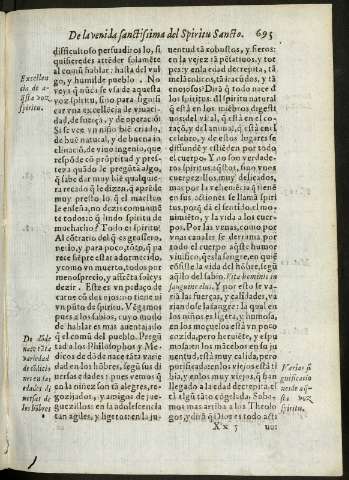 De la venida sanctissima del Spiritu Sancto. 695
difficultoso persuadiros lo, si
quisieredes atēder solamēte
al comũ hablar: hasta del vul-
go, y humilde pueblo. No
veys q̃ nũca se vsa de aquesta
voz spiritu, sino para signifi
car vna excelēcia de viuaci-
dad, de fuerça, y de operaciõ?
Si se vee vn niño biē criado,
de buē natural, y de buena in
clinaciõ, de viuo ingenio, que
respõde cõ prõptitud, y pres-
teza quãdo le pregũtã algo,
q̃ sabe dar muy biē qualque-
ra recado q̃ le dizen, q̃ aprēde
muy presto lo q̃ el maestro
le enseña, no dezis comunmē
te todos: o q̃ lindo spiritu de
muchacho? Todo es spiritu?
Al cõtrario del q̃ es grossero,
necio, y para poco, tõto, q̃ pa
rece siēpre estar adormecido,
y como vn muerto, todos por
menosprecio, y afrēta soleys
dezir. Este es vn pedaço de
carne cõ dos ojos: no tiene ni
vn pũto de spiritu. Vēgamos
pues a los sabios, cuyo modo
de hablar es mas auentajado
q̃ el comũ del pueblo. Pregũ
tad a los Philosophos y Me-
dicos de dõde nace tãta varie
dad en los hõbres, segun las di
uersas edades: pues vemos q̃
en la niñez son tã alegres, re-
gozijados, y amigos de jue-
guezillos: en la adolescencia
tan agiles, y ligeros: en la ju-
Excellen
cia de a-
q̃sta voz
spiritu.
De dõde
nace tãta
variedad
de cõdicio
nes en las
edades di
uersas de
los hõbres
uentud tã robustos, y fieros:
en la vejez tã pesatiuos, y tor
pes: y en la edad decrepita, tã
melācolicos, tã caducos, y tã
enojosos? Dirã q̃ todo nace d̃
los spiritus. El spiritu natural
q̃ está en los miēbros diguesti
uos: del vital, q̃ està en el co-
raçõ, y del animal, q̃ està en el
celebro, y de estos lugares se
diffundē y estiēden por todo
el cuerpo. Y no son verdade-
ros spiritus aq̃stos, sino vnos
cuerpezillos, muy delicados,
mas por la vehemēcia q̃ tienē
en sus actiones se llamã spiri
tus, porq̃ dã el sentido, el mo-
uimiēto, y la vida a los cuer-
pos. Por las venas, como por
vnas canales se derrama por
todo el cuerpo aq̃ste humor
viuifico, q̃ es la sangre, en quiē
cõsiste la vida del hõbre, segũ
aq̃llo del sabio. Vita hominis in
sanguine eius. Y por esto se va-
riã las fuerças, y calidades, va
riandose la sangre: la qual en
los niños es ligera, y humosa,
en los moçuelos está vn poco
encēdida, pero heruētē, y espu
mosa en los mãcebos: en su ju
uentud, está muy calida, pero
purificada: en los viejos està
quieta, y en los muy viejos, q̃ han
llegado a la edad decrepita, es
tà algũ tãto cõgelada. Suba-
mos mas arriba a los Theolo
gos, y dirã q̃ Dios es todo acti
Varias si
gnificacio
nes de aq̃-
sta voz
spiritu.
Xx 3 uos